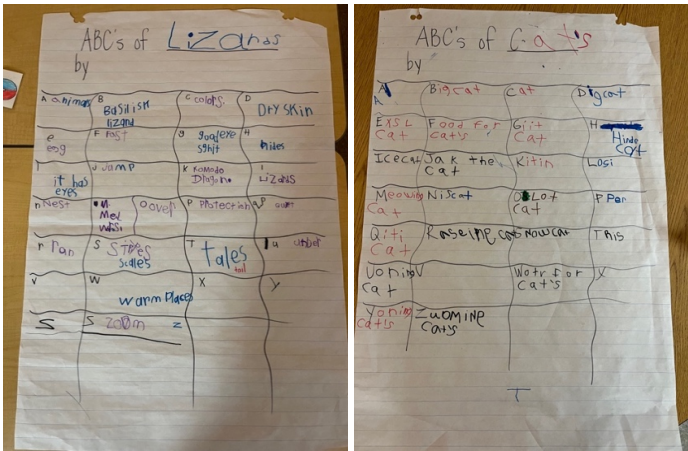 ABC's of Lizards
by
A animals
B Basilisk lizard
C colors.
D Dry skin
e egg
F Fast
g good eye sghit
H hides
I it has eyes
J Jamp
K Komodo Dragon.
L Lizards
n Nest
O over
P Protection
r ran
S Scales
T tales tail
u under
V
W warm Places
X
y
S
S zoom z
ABC's of Cats
by
A
A
Big cat
Cat
Dig cat
Exsl Cat
Food For cat's
Giit Cat
H Hinde Cat
Ice cat
Jak the Cat
Kitin
Losi
Meowing Cat
Nis cat
OsLot Cat
P Per
Qiti Cat
Raseline cat
Snow cat
This
Uoning Cat
V
Watr for Cat's
X
Yoning cat's
Zuomine Cats
T